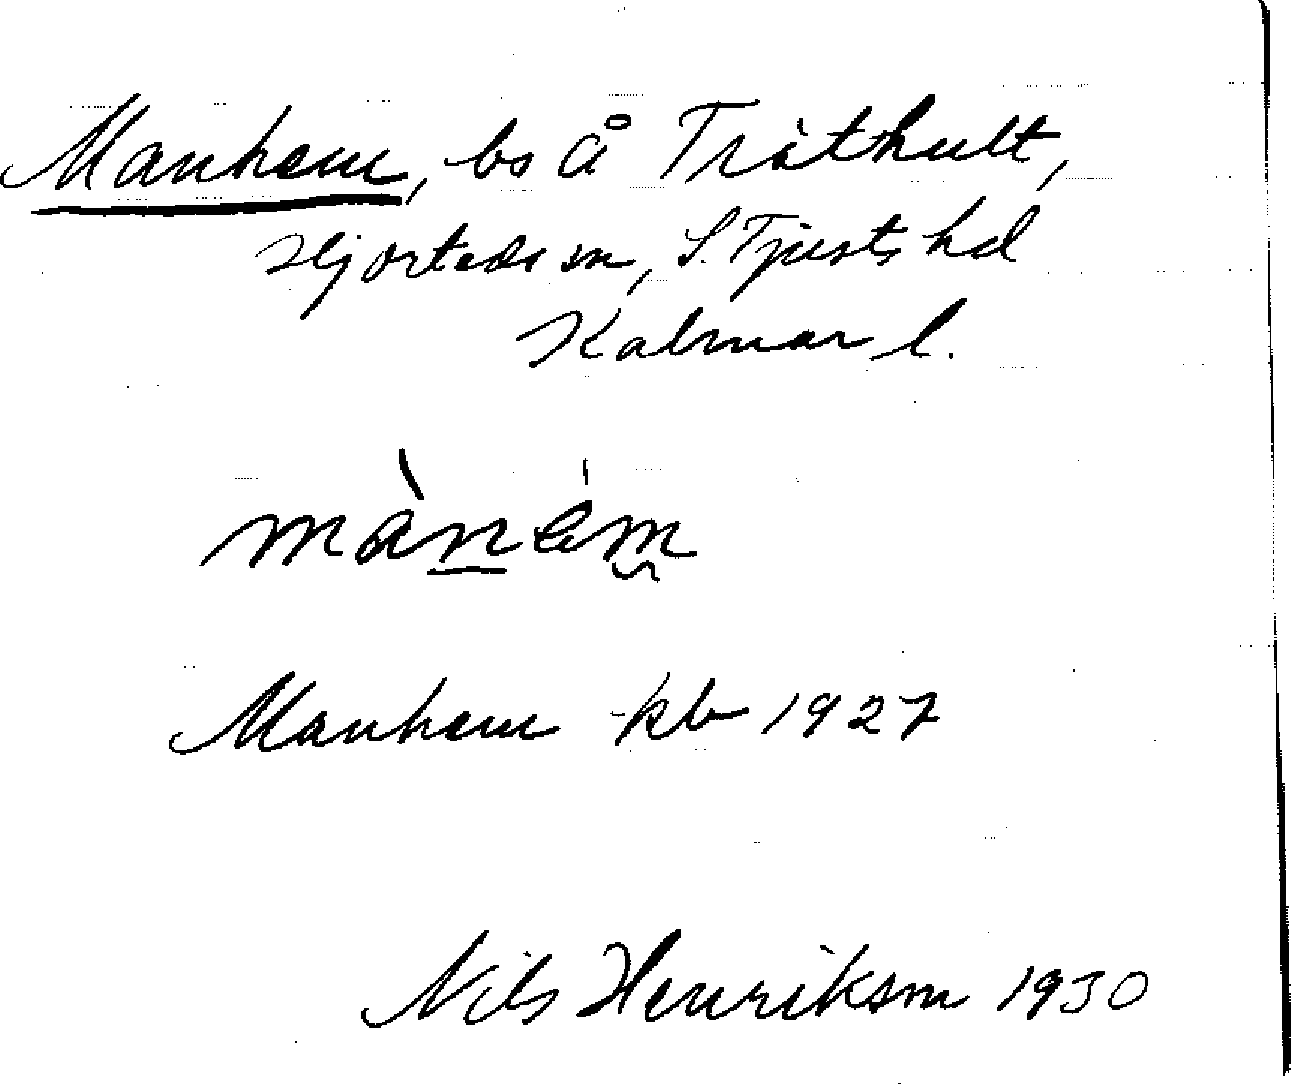 Manhem, bs å Tråthult,
Hjorteds sn, S. Tjusts hd
Kalmar l.
mànem
Manhem kb 1927
Nils Henrikson 1930